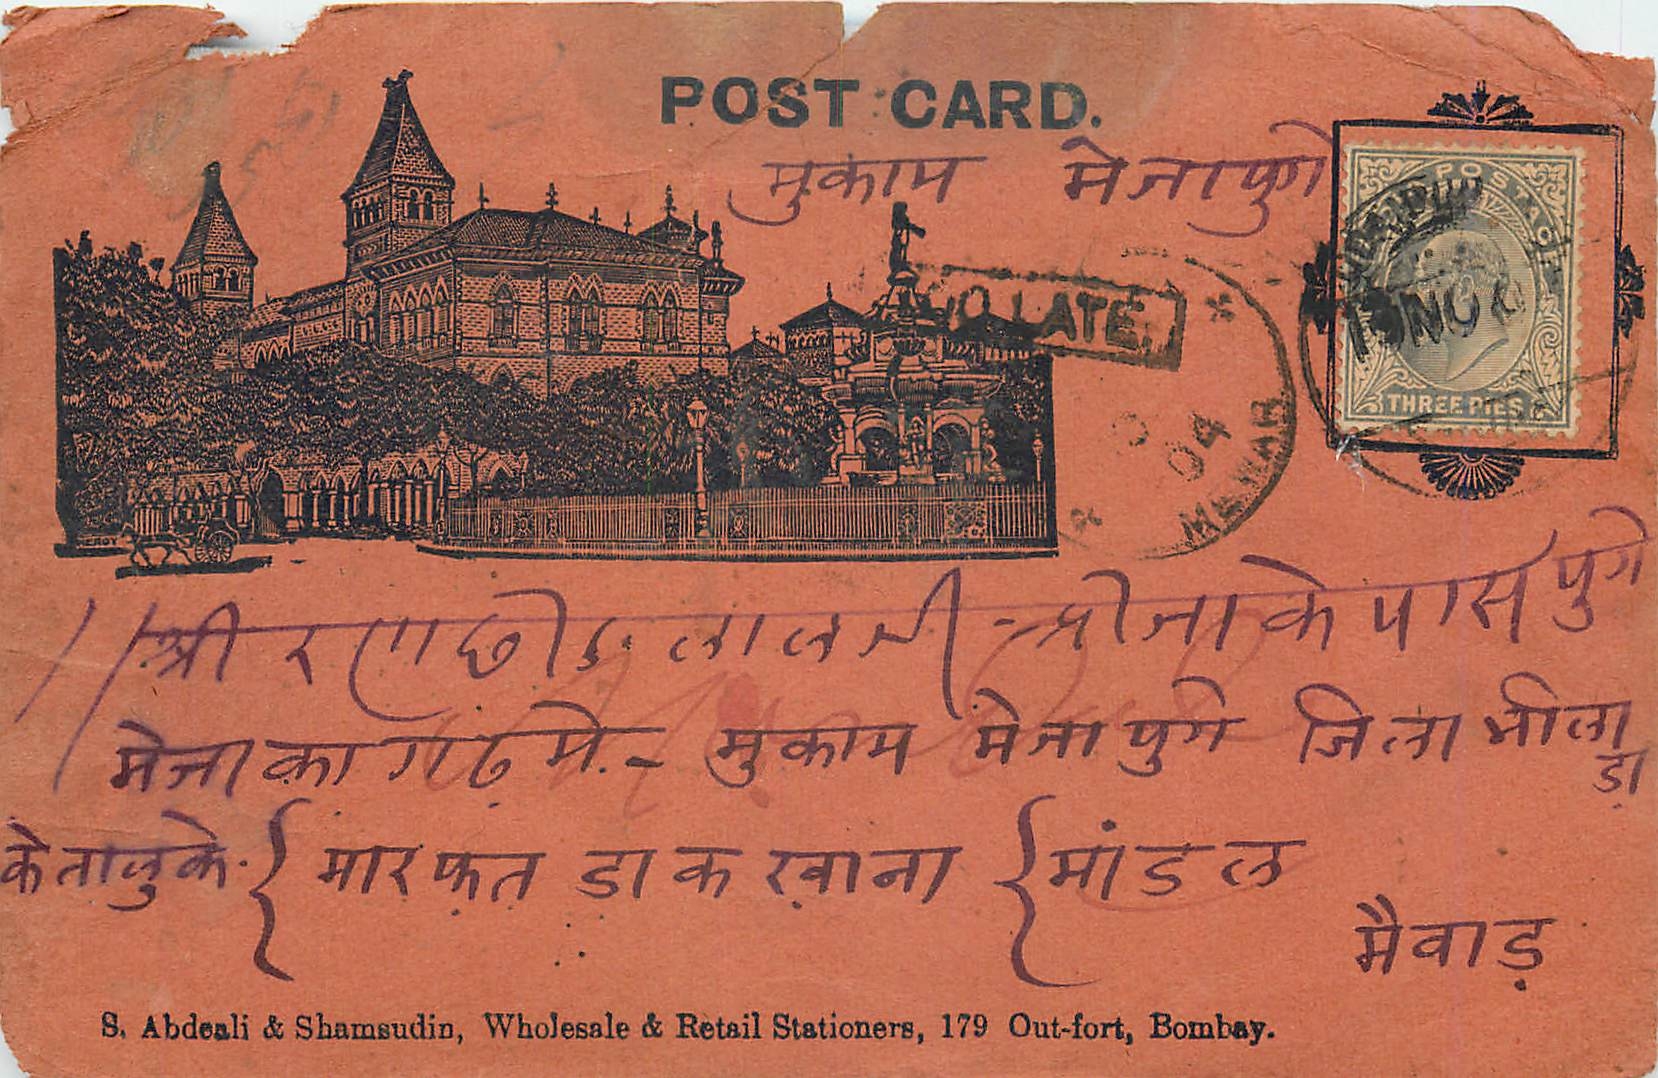 POST CARD.
मुकाम मेजापुरो
POSTAGE
15 NO
THREE PIES
TOO LATE.
04
MEWAR
॥श्री रणछोड लालजी - श्रीजी के पास पुरो
मेजा का गढ़ मे - मुकाम मेजापुरो जिला भीलाड़ा
के तालुके { मारफत डाकखाना { मांडल
मैवाड़
S. Abdeali & Shamsudin, Wholesale & Retail Stationers, 179 Out-fort, Bombay.